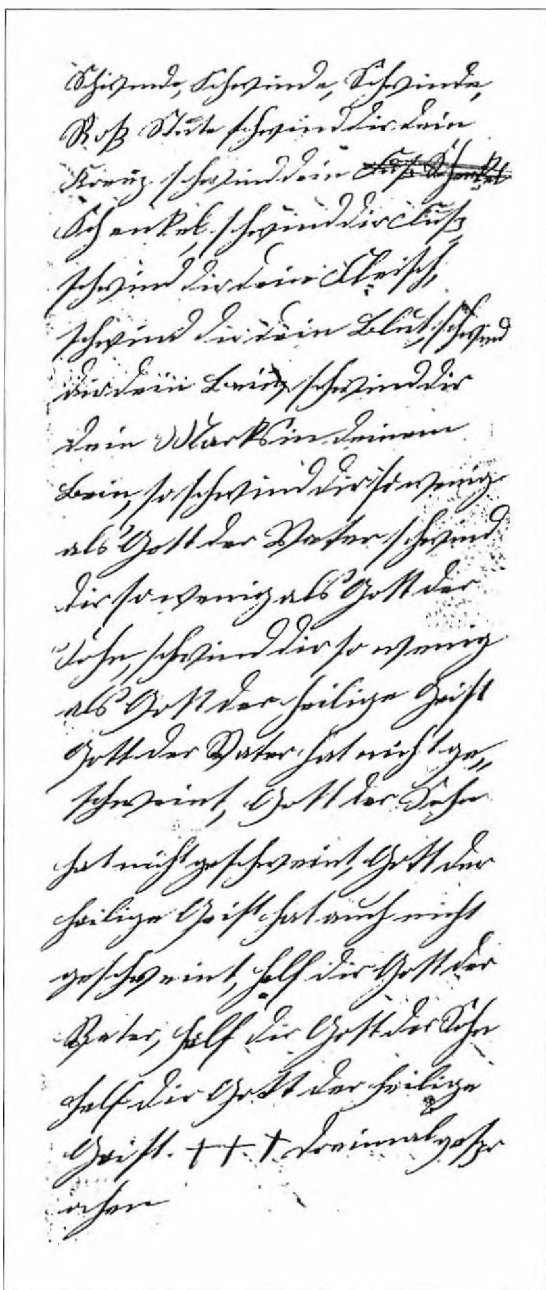 Schwinde, Schwinde, Schwinde,
Roß Stute schwind dir dein
Kreuz, schwind dein Fuß Schenkel
Schenkel, schwind dir Fuß,
schwind dir dein Fleisch,
schwind dir dein Blut, schwind
dir dein Bein, schwind dir
dein Marks in deinem
Bein, so schwind dir so wenig
als Gott der Vater, schwind
dir so wenig als Gott der
Sohn, schwind dir so wenig
als Gott der heilige Geist
Gott der Vater hat nicht ge„
schweint, Gott der Sohn
hat nicht geschweint, Gott der
heilige Geist hat auch nicht
geschweint, helf dir Gott der
Vater, helf dir Gott der Sohn
helf dir Gott der heilige
Geist. + + + dreimal gespr
ochen